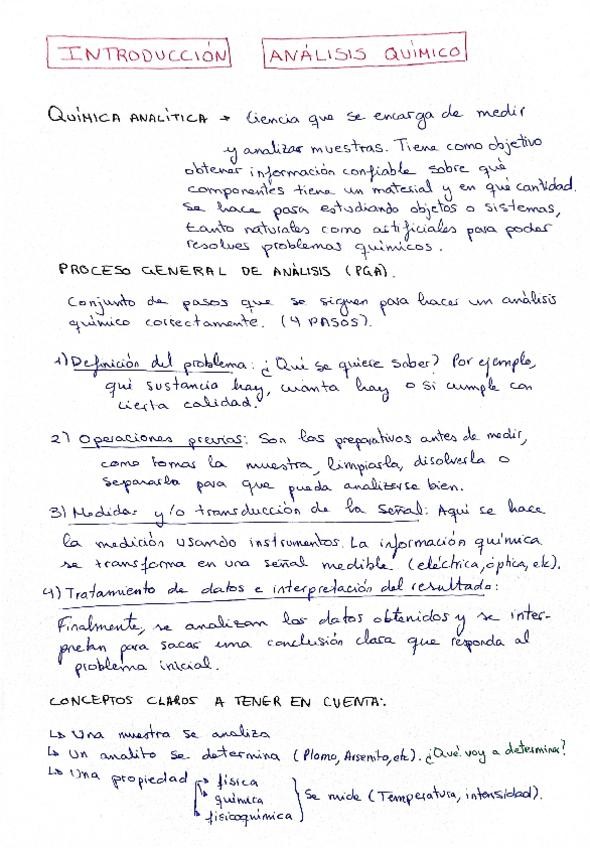 INTRODUCCIÓN ANÁLISIS QUÍMICO
QUÍMICA ANALÍTICA → Ciencia que se encarga de medir
y analizar muestras. Tiene como objetivo
obtener información confiable sobre qué
componentes tiene un material y en qué cantidad.
Se hace para estudiando objetos o sistemas,
tanto naturales como artificiales para poder
resolver problemas químicos.
PROCESO GENERAL DE ANÁLISIS (PGA).
Conjunto de pasos que se siguen para hacer un análisis
químico correctamente. (4 PASOS).
1) Definición del problema: ¿Qué se quiere saber? Por ejemplo,
qué sustancia hay, cuánta hay o si cumple con
cierta calidad.
2) Operaciones previas: Son los preparativos antes de medir,
como tomar la muestra, limpiarla, disolverla o
separarla para que pueda analizarse bien.
3) Medidas y/o transducción de la señal: Aquí se hace
la medición usando instrumentos. La información química
se transforma en una señal medible. (eléctrica, óptica, etc).
4) Tratamiento de datos e interpretación del resultado:
Finalmente, se analizan los datos obtenidos y se inter-
pretan para sacar una conclusión clara que responda al
problema inicial.
CONCEPTOS CLAROS A TENER EN CUENTA:
↳ Una muestra se analiza
↳ Un analito se determina (Plomo, Arsenito, etc). ¿Qué voy a determinar?
↳ Una propiedad → física
→ química
→ fisicoquímica } Se mide (Temperatura, intensidad).